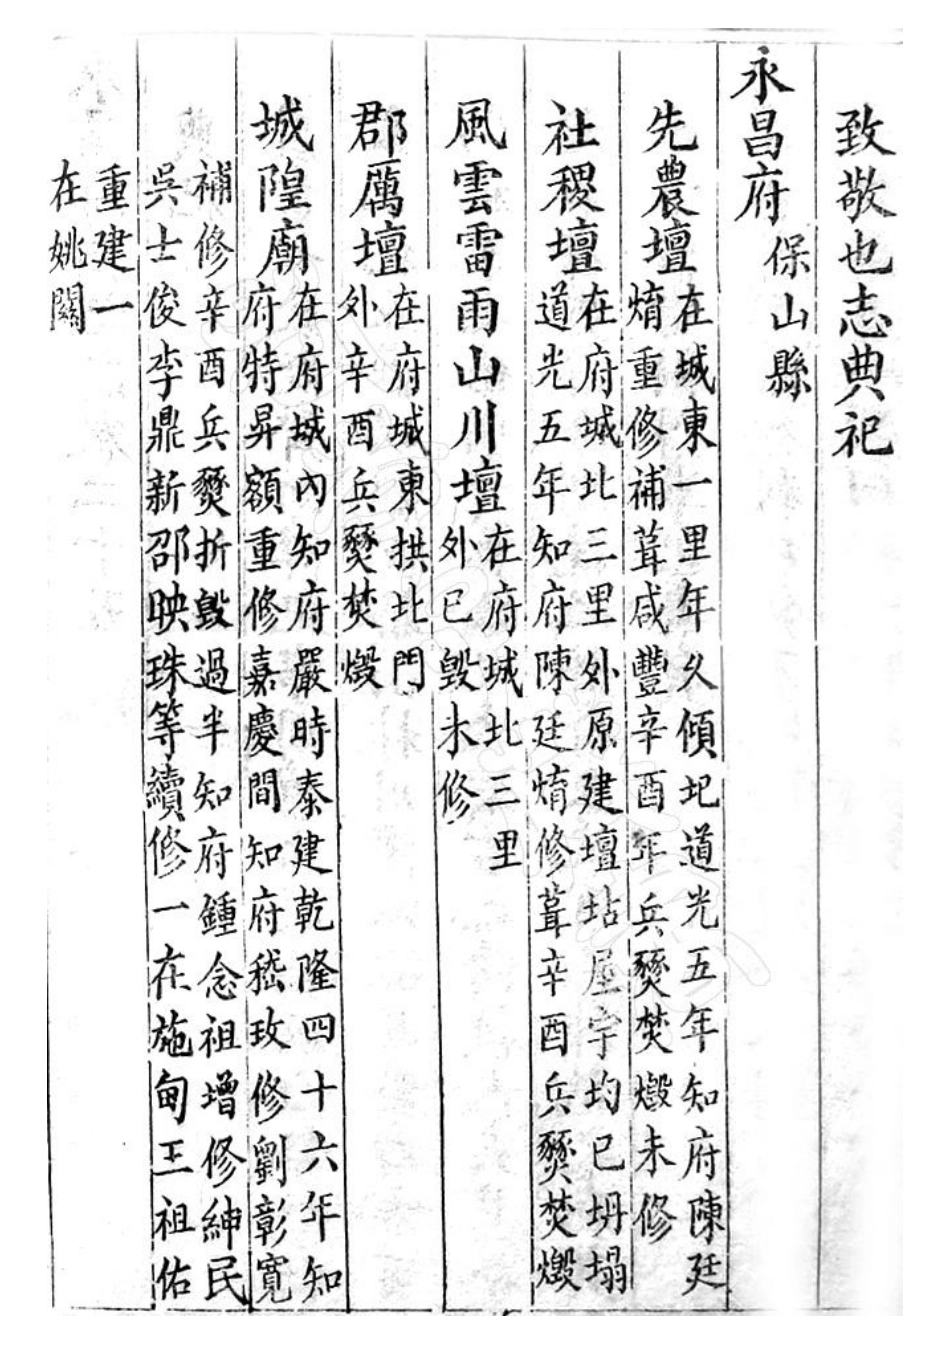 致敬也志典祀
永昌府保山縣
先農壇在城東一里年久傾圯道光五年知府陳廷
焴重修補葺咸豐辛酉年兵燹焚燬未修
社稷壇在府城北三里外原建壇坫屋宇均已坍塌
道光五年知府陳廷焴修葺辛酉兵燹焚燬
風雲雷雨山川壇在府城北三里
外已毀未修
郡厲壇在府城東拱北門
外辛酉兵燹焚燬
城隍廟在府城內知府嚴時泰建乾隆四十六年知
府特昇額重修嘉慶間知府嵇玫修劉彰寬
補修辛酉兵燹折毀過半知府鍾念祖增修紳民
吳士俊李鼎新邵映珠等續修一在施甸王祖佑
重建一
在姚關